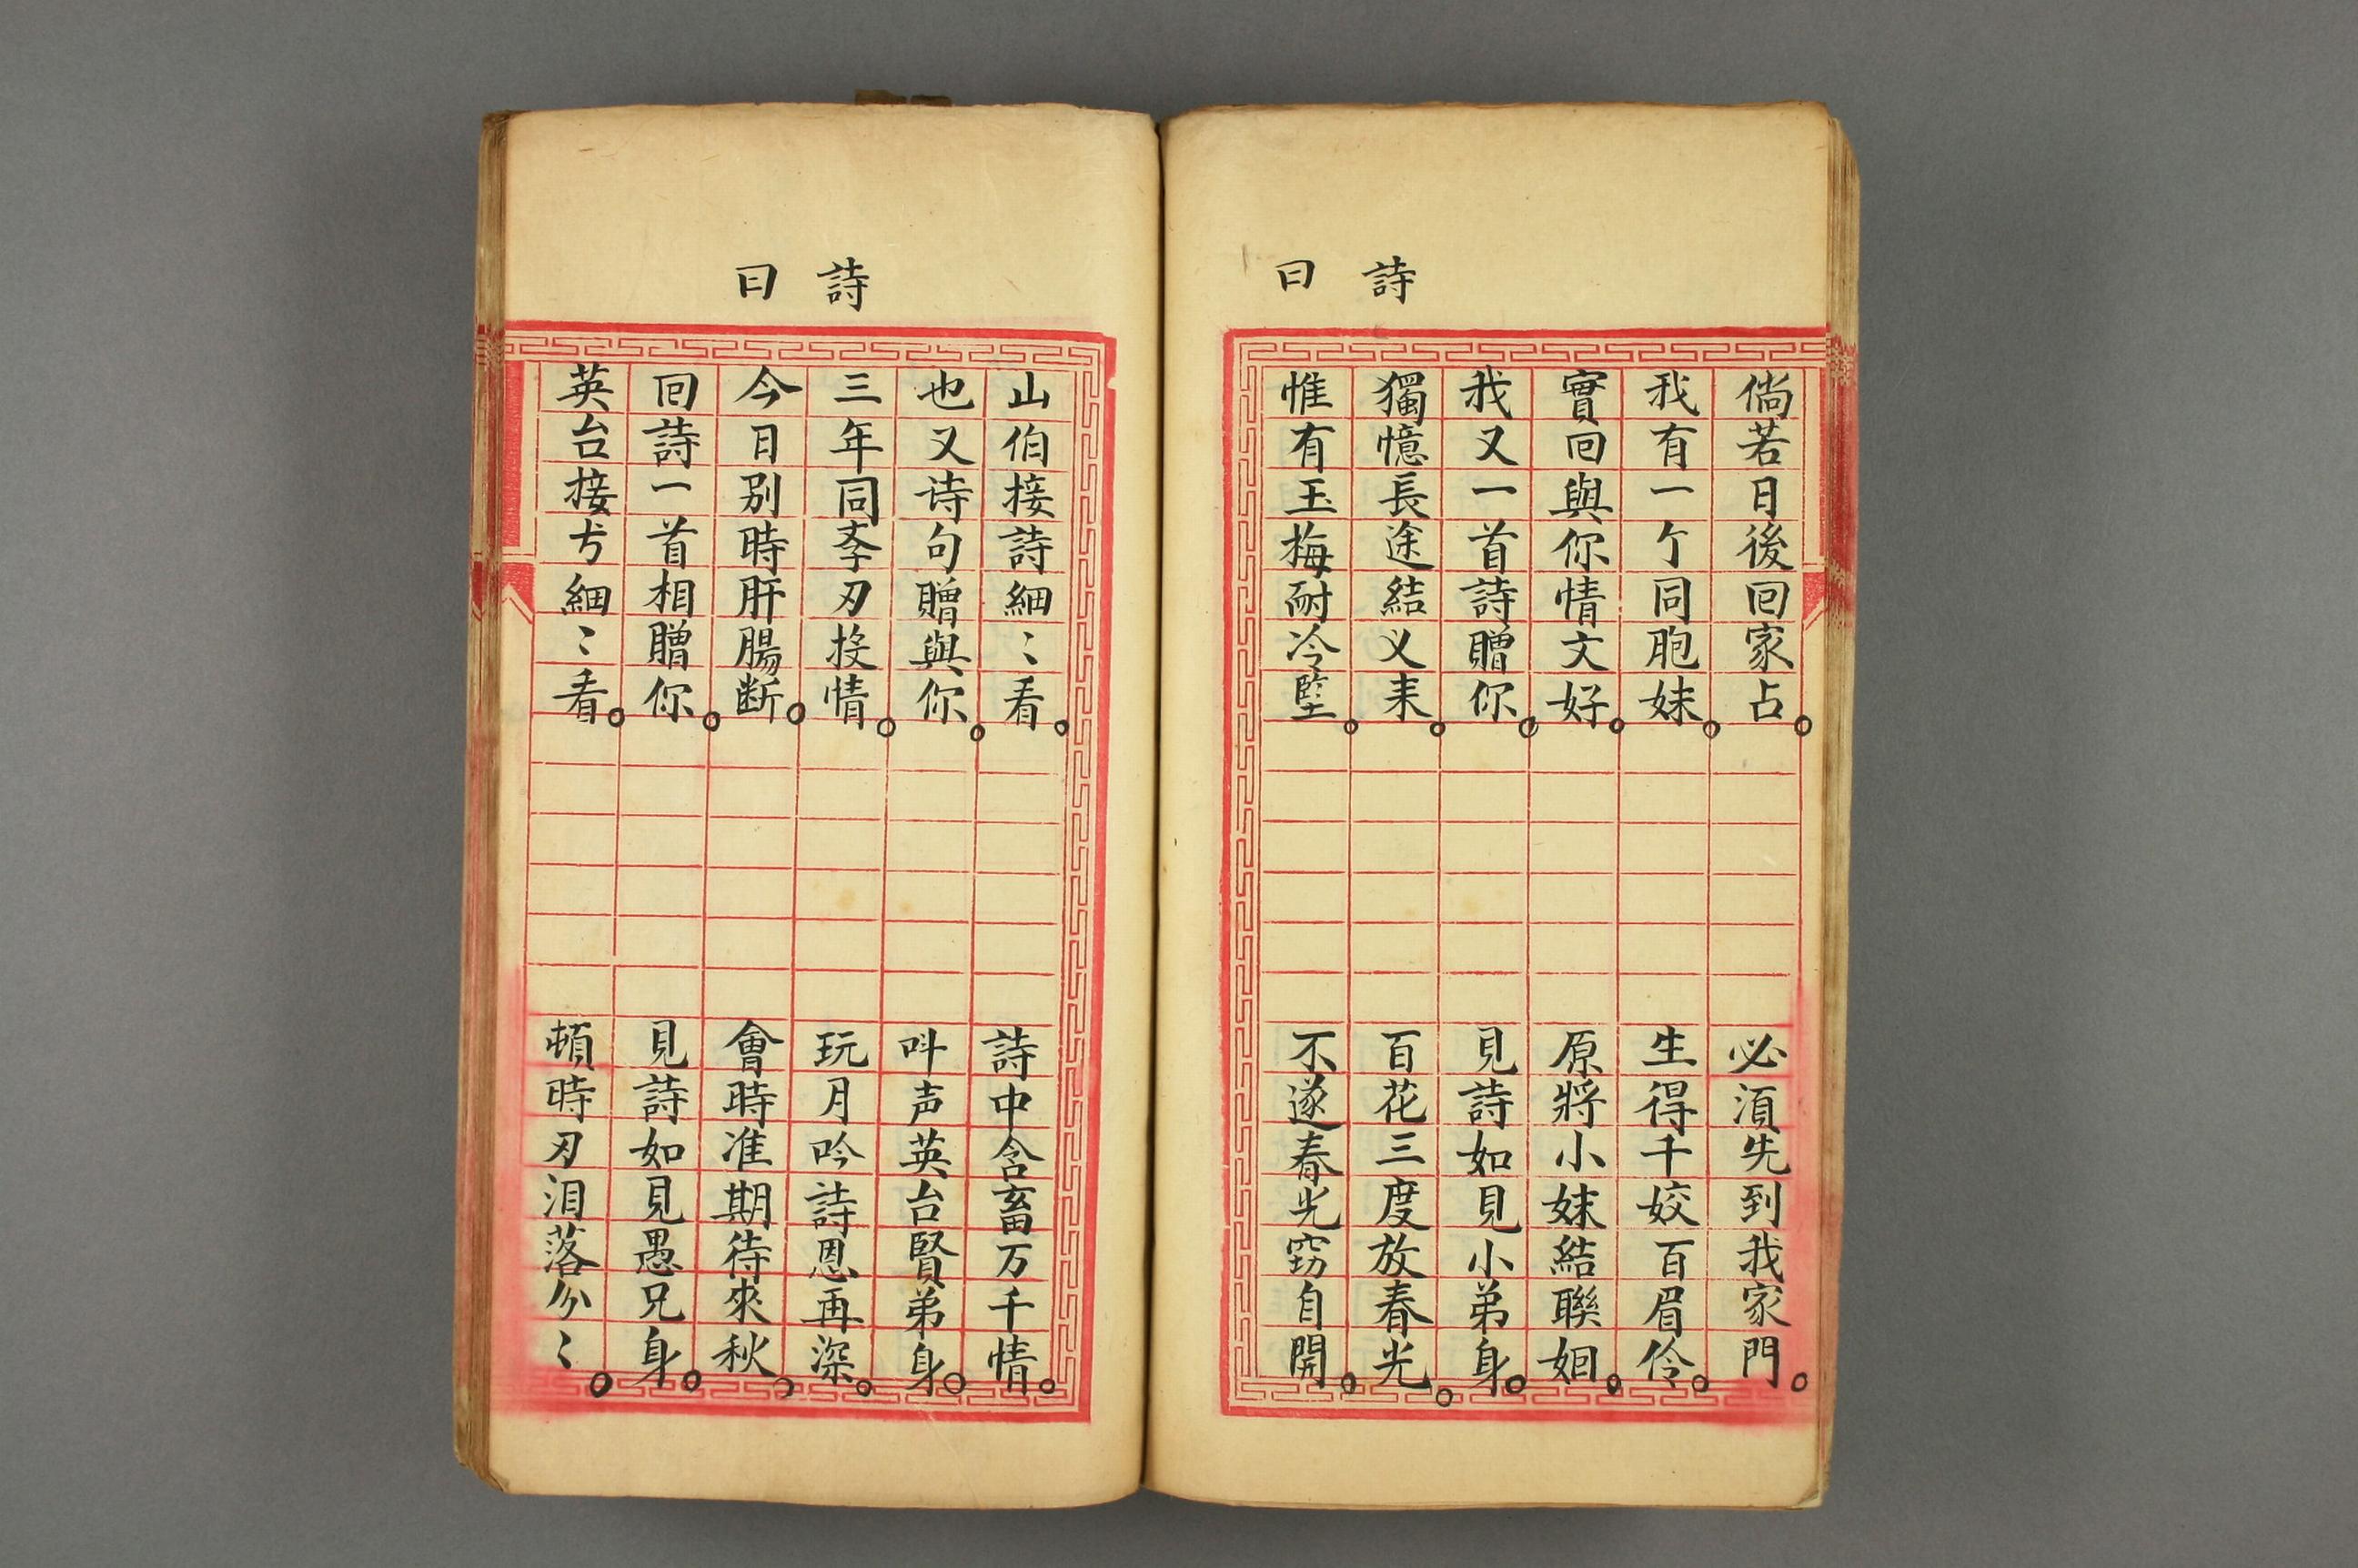 詩曰
倘若日後回家占
必須先到我家門
我有一个同胞妹
生得千姣百眉伶
實回與你情文好
原將小妹結聯姻
我又一首詩贈你
見詩如見小弟身
獨憶長途結义来
百花三度放春光
惟有玉梅耐冷堅
不遂春光窈自開
詩曰
山伯接詩細〻看
詩中含畜万千情
也又诗句贈與你
呌声英台賢弟身
三年同斈刃投情
玩月吟詩恩再深
今日别時肝腸断
會時准期待來秋
回詩一首相贈你
見詩如見愚兄身
英台接兮細〻看
頓時刃泪落分〻